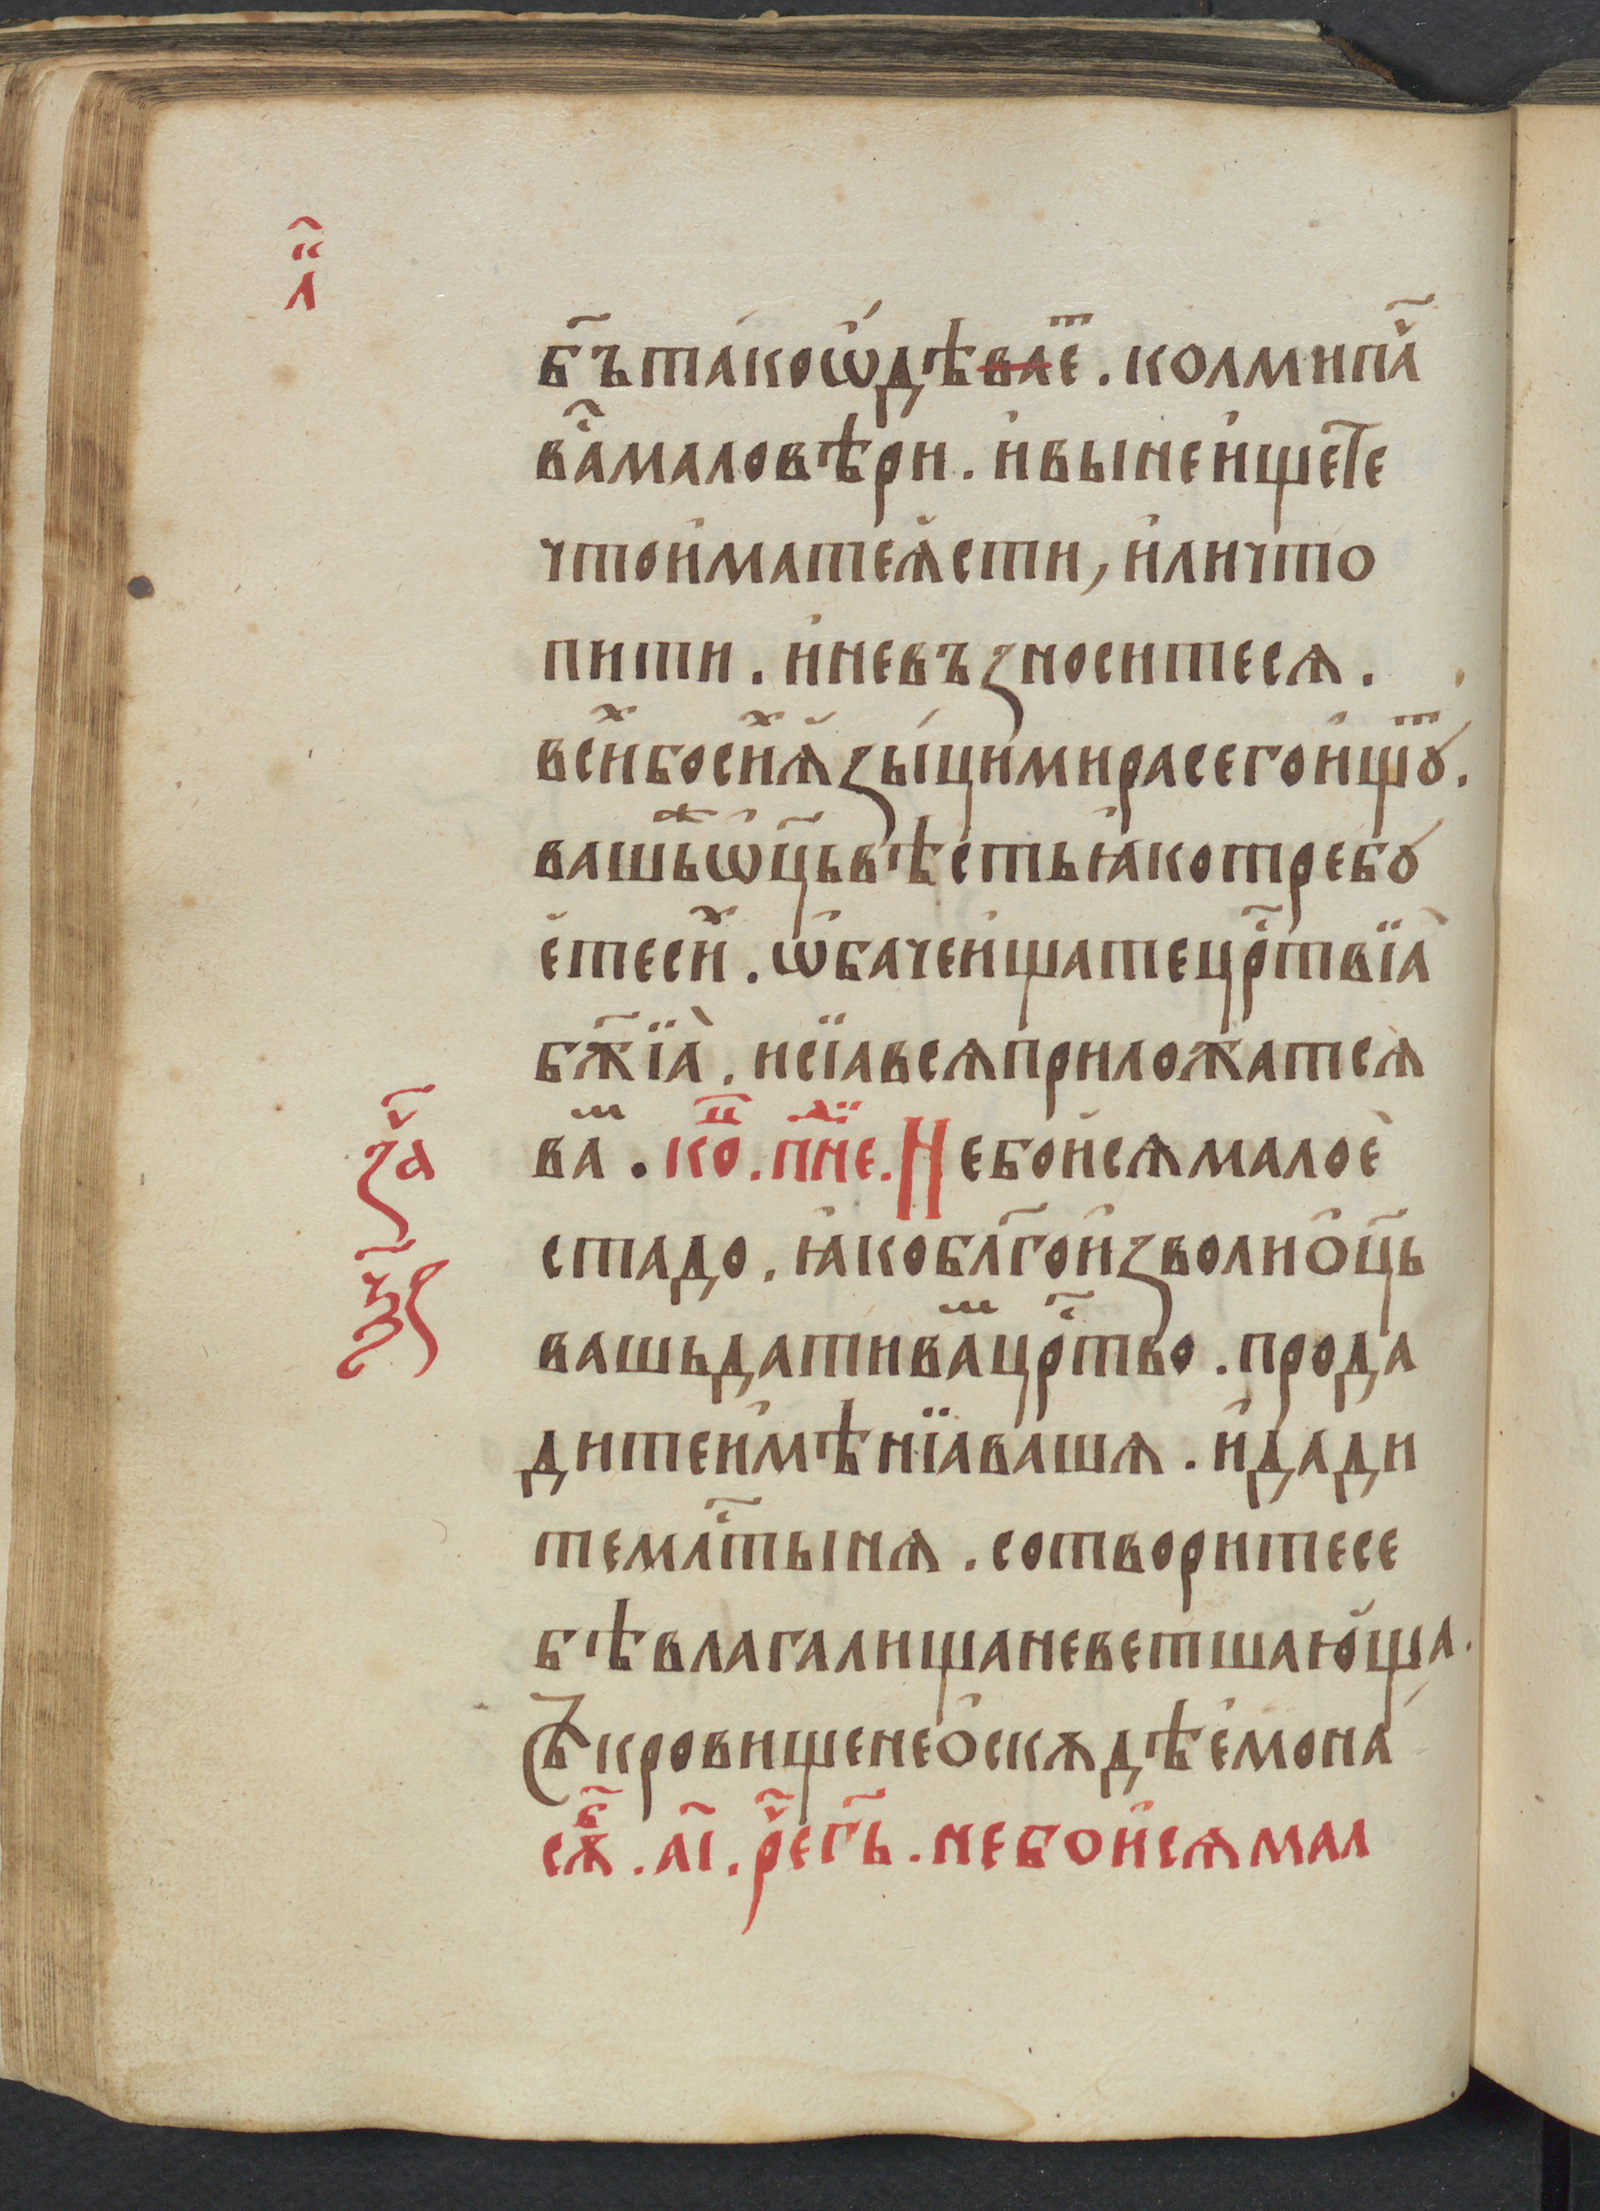 л҃
б҃ъ тако ѡдѣваеⷮ . колми паⷱ҇
ваⷭ҇ маловѣри . и вы не ищете
что имате ꙗсти , или что
пити . и не възноситесѧ .
всиⷯ бо сиⷯ ѧзыци мира сего ищꙋⷮ .
вашь ѡц҃ь вѣсть ꙗко требꙋ
ете сиⷯ . ѡбаче ищате црⷭ҇твїа
бж҃їа . и сїа всѧ приложатсѧ
ваⷨ . коⷰ . пнⷣе . Не боисѧ малое
заⷱ҇
ѯ҃з
стадо . ꙗко блг҃оизволи оц҃ь
вашь дати ваⷨ црⷭ҇тво . прода
дите имѣнїа вашѧ . и дади
те млⷭ҇тынѧ . сотворите се
бѣ влагалища не ветшающа .
Съкровище не оскѫдѣемо на
сѫⷠ҇ . л҃і . рⷱ҇е гь҃ . не боисѧ мал